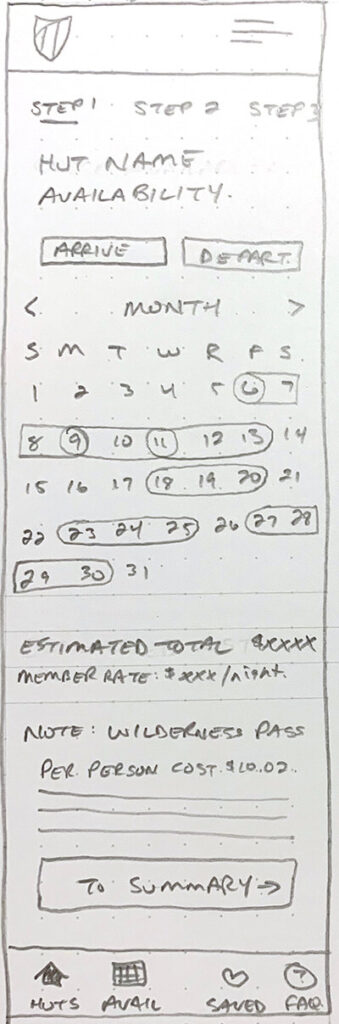 STEP 1 STEP 2 STEP 3
HUT NAME
AVAILABILITY.
ARRIVE DEPART
< MONTH >
S M T W R F S
1 2 3 4 5 6 7
8 9 10 11 12 13 14
15 16 17 18 19 20 21
22 23 24 25 26 27 28
29 30 31
ESTIMATED TOTAL $XXXX
MEMBER RATE: $XXX/night.
NOTE: WILDERNESS PASS
PER PERSON COST $10.02.
TO SUMMARY →
? 
HUTS AVAIL SAVED FAQ